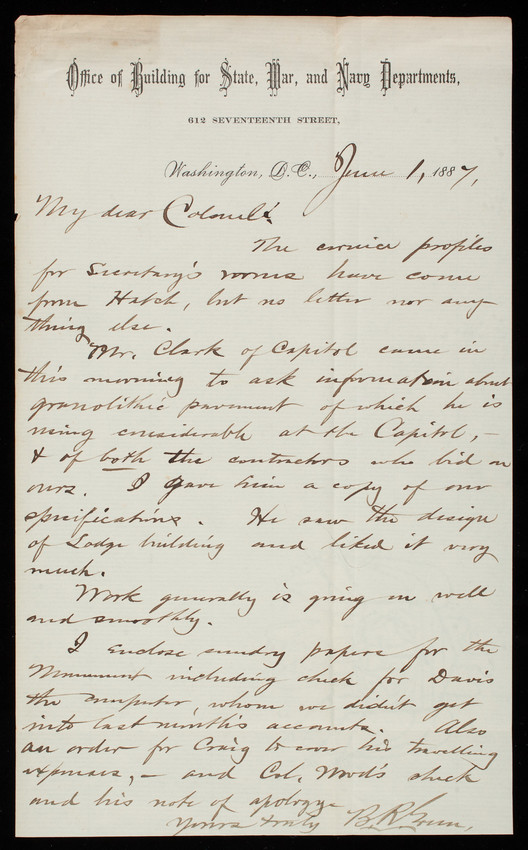 Office of Building for State, War, and Navy Departments,
612 SEVENTEENTH STREET,
Washington, D.C., June 1, 1887,
My dear Colonel:
The cornice profiles
for Secretary's rooms have come
from Hatch, but no letter nor any
thing else.
Mr. Clark of Capitol came in
this morning to ask information about
granolithic pavement of which he is
using considerable at the Capitol, –
& of both the contractors who bid on
ours. I gave him a copy of our
specifications. He saw the design
of Lodge building and liked it very
much.
Work generally is going on well
and smoothly.
I enclose sundry papers for the
Monument including check for Davis
the computer, whom we didn't get
into last month's accounts. Also
an order for Craig to cover his travelling
expenses, – and Col. Wood's check
and his note of apology.
Yours truly B.R. Green,